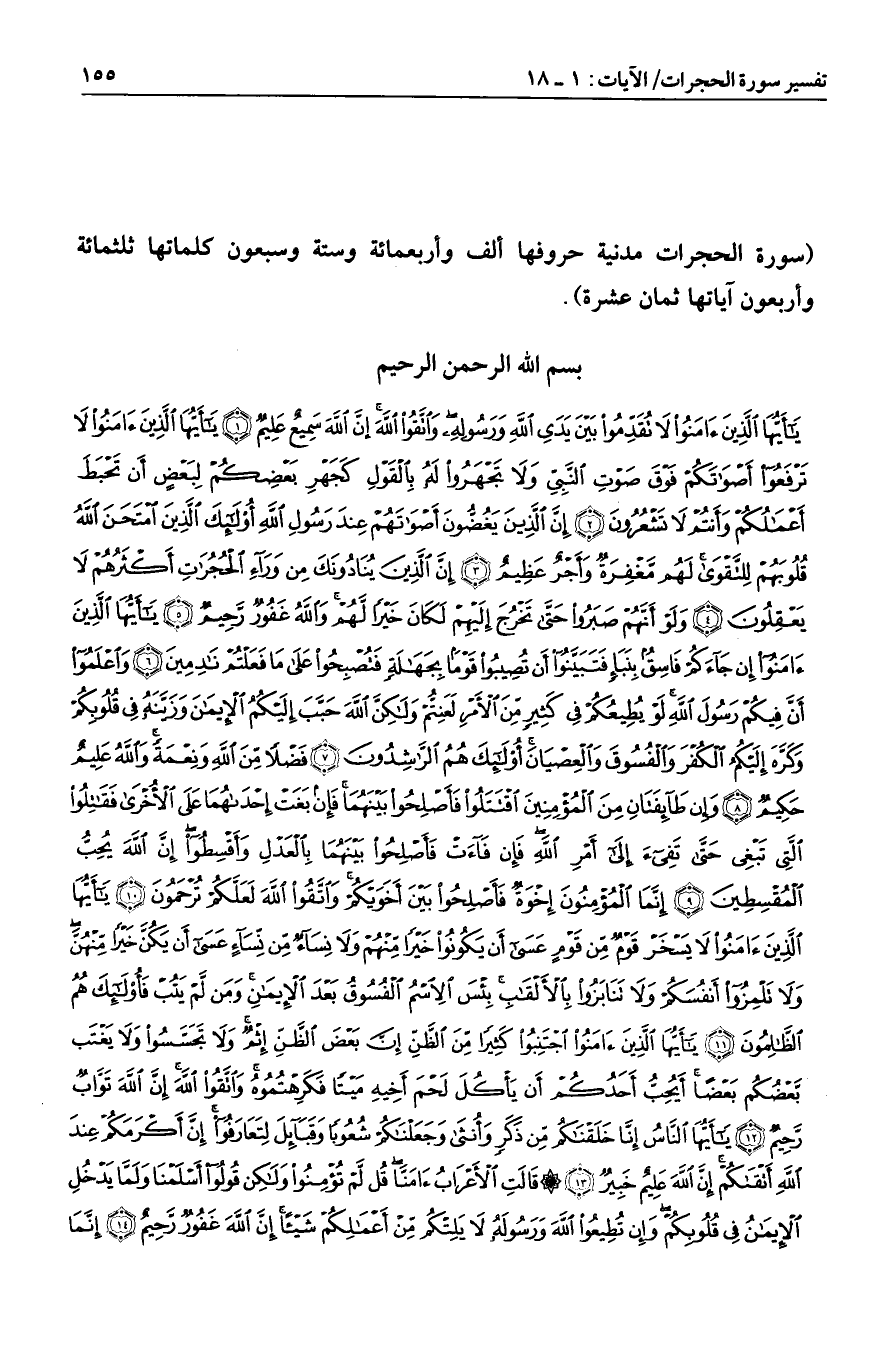 تفسير سورة الحجرات/ الآيات: ١ - ١٨ ١٥٥
(سورة الحجرات مدنية حروفها ألف وأربعمائة وستة وسبعون كلماتها ثلثمائة
وأربعون آياتها ثمان عشرة).
بسم الله الرحمن الرحيم
يَٰٓأَيُّهَا ٱلَّذِينَ ءَامَنُوا۟ لَا تُقَدِّمُوا۟ بَيْنَ يَدَىِ ٱللَّهِ وَرَسُولِهِۦ ۖ وَٱتَّقُوا۟ ٱللَّهَ ۚ إِنَّ ٱللَّهَ سَمِيعٌ عَلِيمٌ ﴿١﴾ يَٰٓأَيُّهَا ٱلَّذِينَ ءَامَنُوا۟ لَا
تَرْفَعُوٓا۟ أَصْوَٰتَكُمْ فَوْقَ صَوْتِ ٱلنَّبِىِّ وَلَا تَجْهَرُوا۟ لَهُۥ بِٱلْقَوْلِ كَجَهْرِ بَعْضِكُمْ لِبَعْضٍ أَن تَحْبَطَ
أَعْمَٰلُكُمْ وَأَنتُمْ لَا تَشْعُرُونَ ﴿٢﴾ إِنَّ ٱلَّذِينَ يَغُضُّونَ أَصْوَٰتَهُمْ عِندَ رَسُولِ ٱللَّهِ أُو۟لَٰٓئِكَ ٱلَّذِينَ ٱمْتَحَنَ ٱللَّهُ
قُلُوبَهُمْ لِلتَّقْوَىٰ ۚ لَهُم مَّغْفِرَةٌ وَأَجْرٌ عَظِيمٌ ﴿٣﴾ إِنَّ ٱلَّذِينَ يُنَادُونَكَ مِن وَرَآءِ ٱلْحُجُرَٰتِ أَكْثَرُهُمْ لَا
يَعْقِلُونَ ﴿٤﴾ وَلَوْ أَنَّهُمْ صَبَرُوا۟ حَتَّىٰ تَخْرُجَ إِلَيْهِمْ لَكَانَ خَيْرًا لَّهُمْ ۚ وَٱللَّهُ غَفُورٌ رَّحِيمٌ ﴿٥﴾ يَٰٓأَيُّهَا ٱلَّذِينَ
ءَامَنُوٓا۟ إِن جَآءَكُمْ فَاسِقٌۢ بِنَبَإٍ فَتَبَيَّنُوٓا۟ أَن تُصِيبُوا۟ قَوْمًۢا بِجَهَٰلَةٍ فَتُصْبِحُوا۟ عَلَىٰ مَا فَعَلْتُمْ نَٰدِمِينَ ﴿٦﴾ وَٱعْلَمُوٓا۟
أَنَّ فِيكُمْ رَسُولَ ٱللَّهِ ۚ لَوْ يُطِيعُكُمْ فِى كَثِيرٍ مِّنَ ٱلْأَمْرِ لَعَنِتُّمْ وَلَٰكِنَّ ٱللَّهَ حَبَّبَ إِلَيْكُمُ ٱلْإِيمَٰنَ وَزَيَّنَهُۥ فِى قُلُوبِكُمْ
وَكَرَّهَ إِلَيْكُمُ ٱلْكُفْرَ وَٱلْفُسُوقَ وَٱلْعِصْيَانَ ۚ أُو۟لَٰٓئِكَ هُمُ ٱلرَّٰشِدُونَ ﴿٧﴾ فَضْلًا مِّنَ ٱللَّهِ وَنِعْمَةً ۚ وَٱللَّهُ عَلِيمٌ
حَكِيمٌ ﴿٨﴾ وَإِن طَآئِفَتَانِ مِنَ ٱلْمُؤْمِنِينَ ٱقْتَتَلُوا۟ فَأَصْلِحُوا۟ بَيْنَهُمَا ۖ فَإِنۢ بَغَتْ إِحْدَىٰهُمَا عَلَى ٱلْأُخْرَىٰ فَقَٰتِلُوا۟
ٱلَّتِى تَبْغِى حَتَّىٰ تَفِىٓءَ إِلَىٰٓ أَمْرِ ٱللَّهِ ۚ فَإِن فَآءَتْ فَأَصْلِحُوا۟ بَيْنَهُمَا بِٱلْعَدْلِ وَأَقْسِطُوٓا۟ ۖ إِنَّ ٱللَّهَ يُحِبُّ
ٱلْمُقْسِطِينَ ﴿٩﴾ إِنَّمَا ٱلْمُؤْمِنُونَ إِخْوَةٌ فَأَصْلِحُوا۟ بَيْنَ أَخَوَيْكُمْ ۚ وَٱتَّقُوا۟ ٱللَّهَ لَعَلَّكُمْ تُرْحَمُونَ ﴿١٠﴾ يَٰٓأَيُّهَا
ٱلَّذِينَ ءَامَنُوا۟ لَا يَسْخَرْ قَوْمٌ مِّن قَوْمٍ عَسَىٰٓ أَن يَكُونُوا۟ خَيْرًا مِّنْهُمْ وَلَا نِسَآءٌ مِّن نِّسَآءٍ عَسَىٰٓ أَن يَكُنَّ خَيْرًا مِّنْهُنَّ ۖ
وَلَا تَلْمِزُوٓا۟ أَنفُسَكُمْ وَلَا تَنَابَزُوا۟ بِٱلْأَلْقَٰبِ ۖ بِئْسَ ٱلِٱسْمُ ٱلْفُسُوقُ بَعْدَ ٱلْإِيمَٰنِ ۚ وَمَن لَّمْ يَتُبْ فَأُو۟لَٰٓئِكَ هُمُ
ٱلظَّٰلِمُونَ ﴿١١﴾ يَٰٓأَيُّهَا ٱلَّذِينَ ءَامَنُوا۟ ٱجْتَنِبُوا۟ كَثِيرًا مِّنَ ٱلظَّنِّ إِنَّ بَعْضَ ٱلظَّنِّ إِثْمٌ ۖ وَلَا تَجَسَّسُوا۟ وَلَا يَغْتَب
بَّعْضُكُم بَعْضًا ۚ أَيُحِبُّ أَحَدُكُمْ أَن يَأْكُلَ لَحْمَ أَخِيهِ مَيْتًا فَكَرِهْتُمُوهُ ۚ وَٱتَّقُوا۟ ٱللَّهَ ۚ إِنَّ ٱللَّهَ تَوَّابٌ
رَّحِيمٌ ﴿١٢﴾ يَٰٓأَيُّهَا ٱلنَّاسُ إِنَّا خَلَقْنَٰكُم مِّن ذَكَرٍ وَأُنثَىٰ وَجَعَلْنَٰكُمْ شُعُوبًا وَقَبَآئِلَ لِتَعَارَفُوٓا۟ ۚ إِنَّ أَكْرَمَكُمْ عِندَ
ٱللَّهِ أَتْقَىٰكُمْ ۚ إِنَّ ٱللَّهَ عَلِيمٌ خَبِيرٌ ﴿١٣﴾ ۞ قَالَتِ ٱلْأَعْرَابُ ءَامَنَّا ۖ قُل لَّمْ تُؤْمِنُوا۟ وَلَٰكِن قُولُوٓا۟ أَسْلَمْنَا وَلَمَّا يَدْخُلِ
ٱلْإِيمَٰنُ فِى قُلُوبِكُمْ ۖ وَإِن تُطِيعُوا۟ ٱللَّهَ وَرَسُولَهُۥ لَا يَلِتْكُم مِّنْ أَعْمَٰلِكُمْ شَيْـًٔا ۚ إِنَّ ٱللَّهَ غَفُورٌ رَّحِيمٌ ﴿١٤﴾ إِنَّمَا